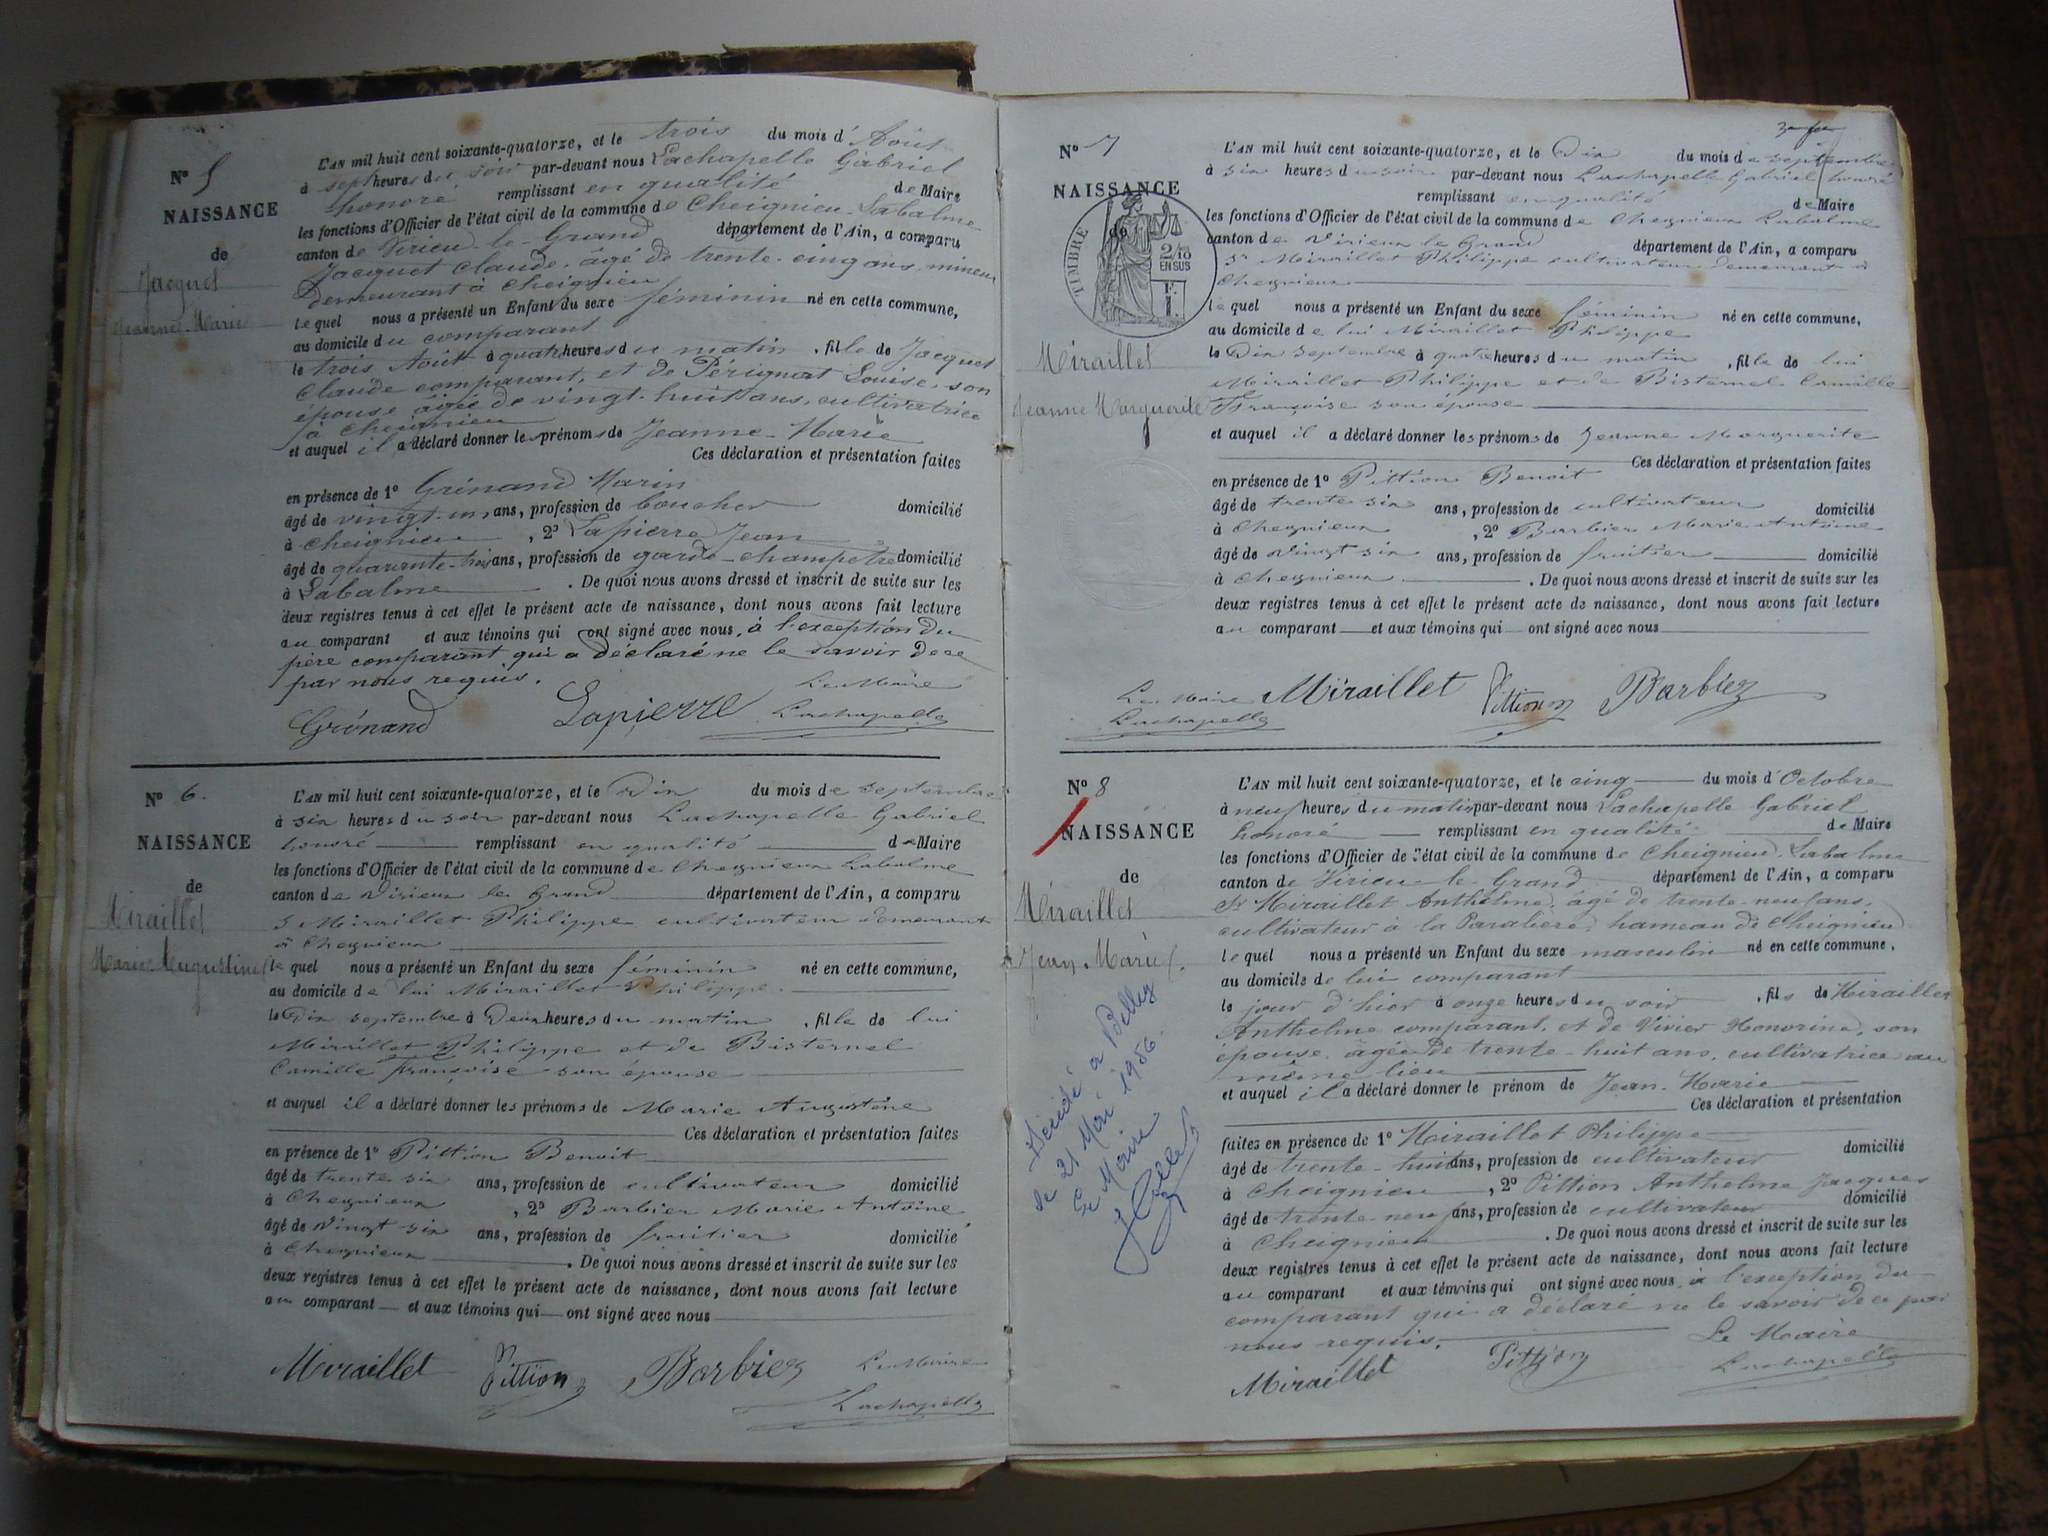 N° 5
NAISSANCE
de
Jacquet
Jeanne-Marie
L'AN mil huit cent soixante-quatorze, et le trois du mois d'Août
à sept heures du soir par-devant nous Lachapelle Gabriel
honoré remplissant en qualité de Maire
les fonctions d'Officier de l'état civil de la commune de Cheignieu-Labalme
canton de Virieu-le-Grand département de l'Ain, a comparu
Jacquet Claude, âgé de trente-cinq ans, mineur
demeurant à Cheignieu
lequel nous a présenté un Enfant du sexe féminin né en cette commune,
au domicile du comparant
le trois Août à quatre heures du matin, fille de Jacquet
Claude comparant, et de Louise, son
épouse âgée de vingt-huit ans, cultivatrice
à Cheignieu
et auquel il a déclaré donner les prénoms de Jeanne-Marie
Ces déclaration et présentation faites
en présence de 1° Grinand Marin
âgé de vingt-un ans, profession de boucher domicilié
à Cheignieu, 2° Lapierre Jean
âgé de quarante-trois ans, profession de garde-champêtre domicilié
à Labalme. De quoi nous avons dressé et inscrit de suite sur les
deux registres tenus à cet effet le présent acte de naissance, dont nous avons fait lecture
au comparant et aux témoins qui ont signé avec nous, à l'exception du
père comparant qui a déclaré ne le savoir de ce
par nous requis.
Le Maire
Grinand Lapierre Lachapelle
N° 6.
NAISSANCE
de
Miraillet
Marie Augustine
L'AN mil huit cent soixante-quatorze, et le Dix du mois de septembre
à six heures du soir par-devant nous Lachapelle Gabriel
honoré remplissant en qualité de Maire
les fonctions d'Officier de l'état civil de la commune de Cheignieux Labalme
canton de Virieux le Grand département de l'Ain, a comparu
S Miraillet Philippe cultivateur demeurant
à Cheignieux
lequel nous a présenté un Enfant du sexe féminin né en cette commune,
au domicile de lui Miraillet Philippe.
le Dix septembre à Deux heures du matin, fille de lui
Miraillet Philippe et de Bisternel
Camille françoise son épouse
et auquel il a déclaré donner les prénoms de Marie Augustine
Ces déclaration et présentation faites
en présence de 1° Pittion Benoit
âgé de trente six ans, profession de cultivateur domicilié
à Cheignieux, 2° Barbier Marie Antoine
âgé de vingt six ans, profession de fruitier domicilié
à Cheignieux. De quoi nous avons dressé et inscrit de suite sur les
deux registres tenus à cet effet le présent acte de naissance, dont nous avons fait lecture
au comparant et aux témoins qui ont signé avec nous
Miraillet Pittion Barbier Le Maire
Lachapelle
N° 7
NAISSANCE
de
TIMBRE
2/10
EN SUS
F.
1.
Miraillet
Jeanne Marguerite
L'AN mil huit cent soixante-quatorze, et le Dix du mois de septembre
à six heures du soir par-devant nous Lachapelle Gabriel honoré
remplissant en qualité de Maire
les fonctions d'Officier de l'état civil de la commune de Cheignieux Labalme
canton de Virieux le Grand département de l'Ain, a comparu
Sr Miraillet Philippe cultivateur demeurant à
Cheignieux
lequel nous a présenté un Enfant du sexe féminin né en cette commune,
au domicile de lui Miraillet Philippe
le Dix septembre à quatre heures du matin, fille de lui
Miraillet Philippe et de Bisternel Camille
Françoise son épouse
et auquel il a déclaré donner les prénoms de Jeanne Marguerite
Ces déclaration et présentation faites
en présence de 1° Pittion Benoit
âgé de trente six ans, profession de cultivateur domicilié
à Cheignieux, 2° Barbier Marie Antoine
âgé de vingt six ans, profession de fruitier domicilié
à Cheignieux. De quoi nous avons dressé et inscrit de suite sur les
deux registres tenus à cet effet le présent acte de naissance, dont nous avons fait lecture
au comparant et aux témoins qui ont signé avec nous
Le Maire Miraillet Pittion Barbier
Lachapelle
N° 8
NAISSANCE
de
Miraillet
Jean-Marie
Décédé à Belley
le 21 Mai 1956
Le Maire
L'AN mil huit cent soixante-quatorze, et le cinq du mois d'Octobre
à neuf heures du matin par-devant nous Lachapelle Gabriel
honoré remplissant en qualité de Maire
les fonctions d'Officier de l'état civil de la commune de Cheignieu-Labalme
canton de Virieu-le-Grand département de l'Ain, a comparu
Sr Miraillet Anthelme, âgé de trente-neuf ans,
cultivateur à la hameau de Cheignieu
lequel nous a présenté un Enfant du sexe masculin né en cette commune,
au domicile de lui comparant
le jour d'hier à onze heures du soir, fils de Miraillet
Anthelme comparant, et de Vivier Honorine, son
épouse, âgée de trente-huit ans, cultivatrice au
même lieu
et auquel il a déclaré donner le prénom de Jean-Marie
Ces déclaration et présentation
faites en présence de 1° Miraillet Philippe domicilié
âgé de trente-huit ans, profession de cultivateur
à Cheignieu, 2° Pittion Anthelme Jacques
âgé de trente-neuf ans, profession de cultivateur domicilié
à Cheignieu. De quoi nous avons dressé et inscrit de suite sur les
deux registres tenus à cet effet le présent acte de naissance, dont nous avons fait lecture
au comparant et aux témoins qui ont signé avec nous à l'exception du
comparant qui a déclaré ne le savoir de ce par
nous requis.
Le Maire
Miraillet Pittion Lachapelle